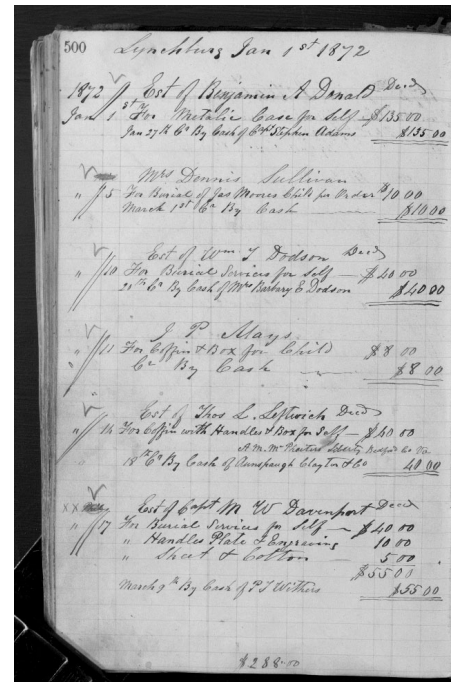 500 Lynchburg Jan 1st 1872
1872 1 Est of Benjamin A Donald Decd
Jan 1st For Metalic Case for Self — $135.00
Jan 27th Cr By Cash of Capt Stephen Adams $135.00
Mrs Dennis Sullivan
" 5 For Burial of Jas Moores Child per Order $10.00
March 1st Cr By Cash $10.00
Est of Wm T Dodson Decd
" 10 For Burial Services for Self — $40.00
20th Cr By Cash of Mrs Barbary E Dodson $40.00
J P Mays
" 11 For Coffin & Box for Child $8 00
" Cr By Cash $8 00
"
Est of Thos L. Leftwich Decd
" 14 For Coffin with Handles & Box for Self — $40 00
Liberty Bedford Co Va
" 18th Cr By Cash of Aunspaugh Clayton & Co 40.00
xx Est of Capt M W Davenport Decd
" 17 For Burial Services for Self — $40.00
" Handles Plate & Engraving 10.00
" Sheet & Cotton — 5.00
$55 00
March 9th By Cash of P T Withers $55.00
$288.00